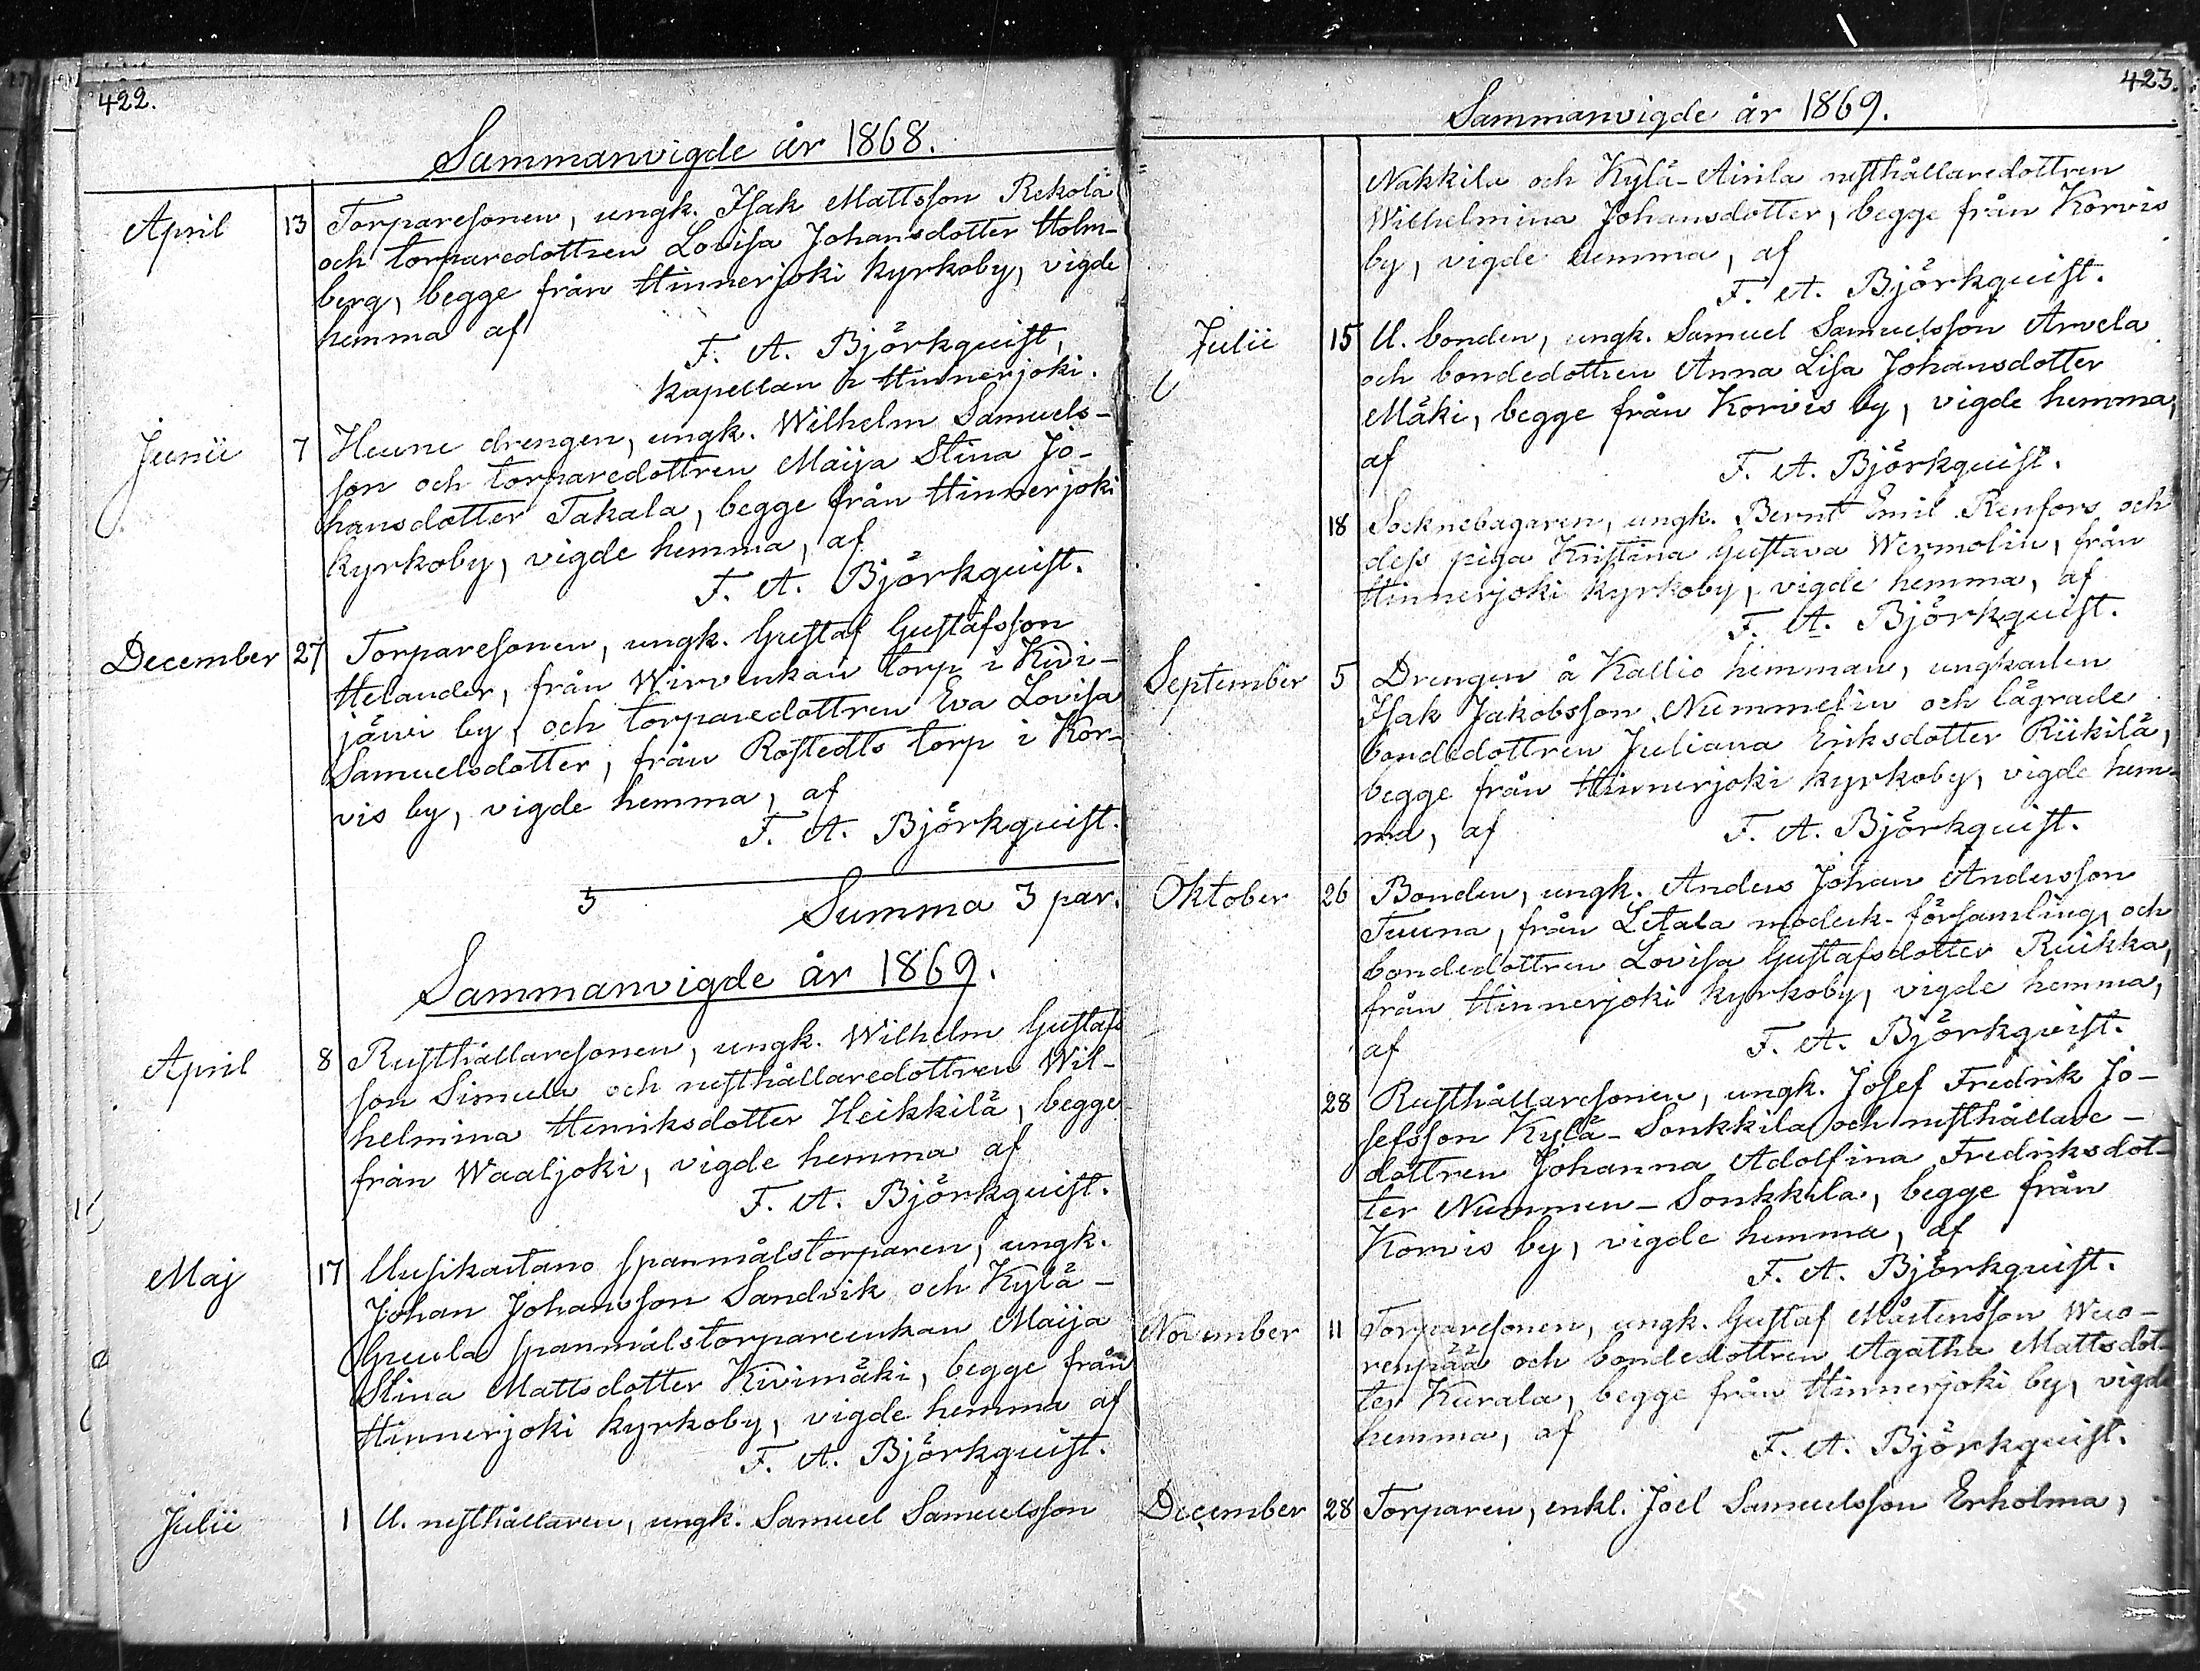 422.
Sammanvigde år 1868.
April 13 Torparesonen, ungk. Isak Mattsson Rekola
och torparedottren Lovisa Johansdotter Holm-
berg, begge från Hinnerjoki kyrkoby, vigde
hemma af
F. A. Björkquist,
kapellan i Hinnerjoki.
Junii 7 Huune drengen, ungk. Wilhelm Samuels-
son och torparedottren Maija Stina Jo-
hansdotter Takala, begge från Hinnerjoki
kyrkoby, vigde hemma, af
F. A. Björkquist.
December 27 Torparesonen, ungk. Gustaf Gustafsson
Helander, från Wirvenkau torp i Kivi-
järvi by, och torparedottren Eva Lovisa
Samuelsdotter, från Rostedts torp i Kor-
vis by, vigde hemma, af
F. A. Björkquist.
3 Summa 3 par.
Sammanvigde år 1869.
April 8 Rusthållaresonen, ungk. Wilhelm Gustafs
son Simula och rusthållaredottren Wil-
helmina Henriksdotter Heikkilä, begge
från Waaljoki, vigde hemma af
F. A. Björkquist.
Maj 17 Uusikartano spanmålstorparen, ungk.
Johan Johansson Sandvik och Kylä-
Guula spanmålstorpareenkan Maija
Stina Mattsdotter Kivimäki, begge från
Hinnerjoki kyrkoby, vigde hemma af
F. A. Björkquist.
Julii 1 U. rusthållaren, ungk. Samuel Samuelsson
423.
Sammanvigde år 1869.
Nakkila och Kylä-Airila rusthållaredottren
Wilhelmina Johansdotter, begge från Korvis
by, vigde hemma, af
F. A. Björkquist.
Julii 15 U. bonden, ungk. Samuel Samuelsson Arvela
och bondedottren Anna Lisa Johansdotter
Mäki, begge från Korvis by, vigde hemma,
af F. A. Björkquist.
18 Socknebagaren, ungk. Bernt Emil Renfors och
dess piga Kristina Gustava Wermolin, från
Hinnerjoki kyrkoby, vigde hemma, af
F. A. Björkquist.
September 5 Drengen å Kallio hemman, ungkarlen
Isak Jakobsson Nummelin och lägrade
bondedottren Juliana Eriksdotter Riikilä,
begge från Hinnerjoki kyrkoby, vigde hem-
ma, af F. A. Björkquist.
Oktober 26 Bonden, ungk. Anders Johan Andersson
Tuuna, från Letala moderk-församling, och
bondedottren Lovisa Gustafsdotter Ruikka,
från Hinnerjoki kyrkoby, vigde hemma,
af F. A. Björkquist.
28 Rusthållaresonen, ungk. Josef Fredrik Jo-
sefsson Kylä-Sonkkila och rusthållare-
dottren Johanna Adolfina Fredriksdot-
ter Nummen-Sonkkila, begge från
Korvis by, vigde hemma, af
F. A. Björkquist.
November 11 Torparesonen, ungk. Gustaf Mårtensson Wuo-
renpää och bondedottren Agatha Mattsdot-
ter Kurala, begge från Hinnerjoki by, vigde
hemma, af F. A. Björkquist.
December 28 Torparen, enkl. Joel Samuelsson Erholma,